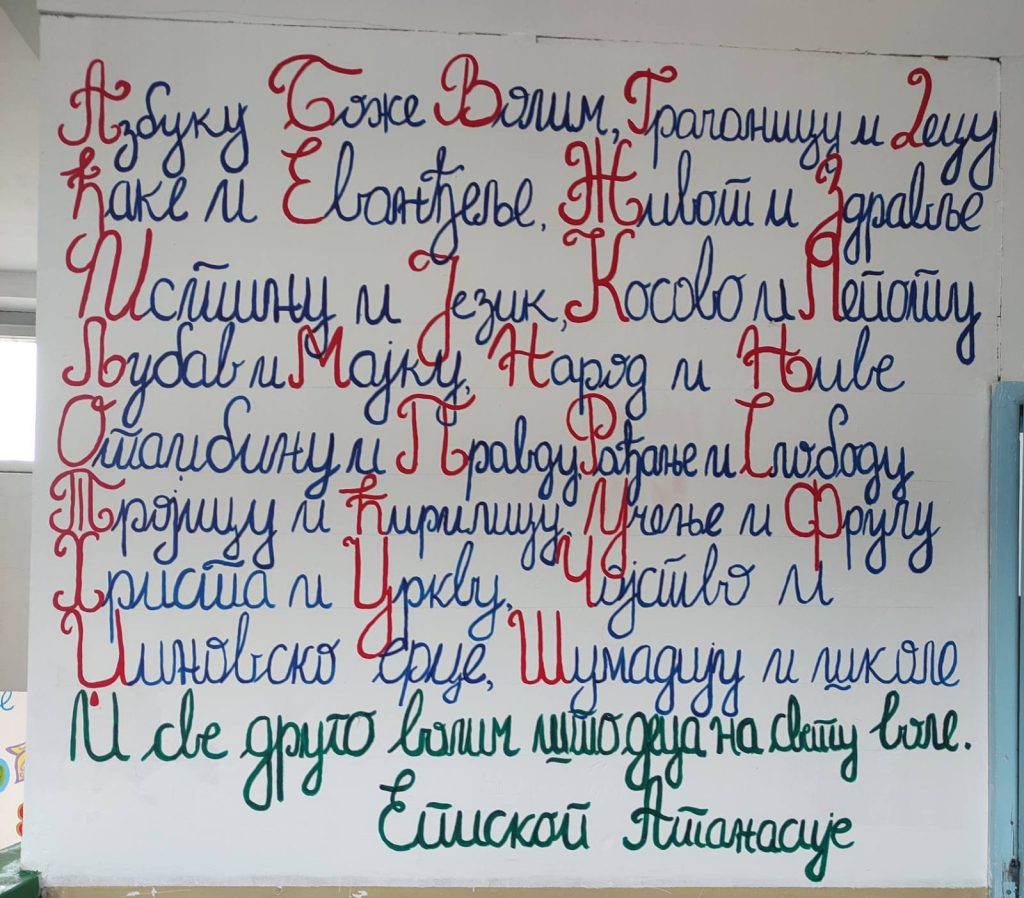 Азбуку Боже Волим, Грачаницу и Децу
Ђаке и Еванђеље, Живот и Здравље
Истину и Језик, Косово и Лепоту
Љубав и Мајку, Народ и Њиве
Отаџбину и Правду, Рађање и Слободу
Тројицу и Ћирилицу, Учење и Фругу
Христа и Цркву, Чојство и
Џиновско срце, Шумадију и школе
И све друго волим што деца на свету воле.
Епископ Атанасије